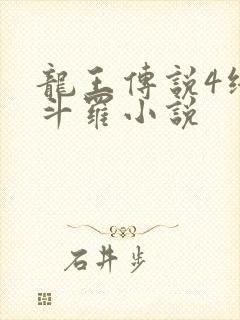 龍王傳說4終
斗羅小說
石井步